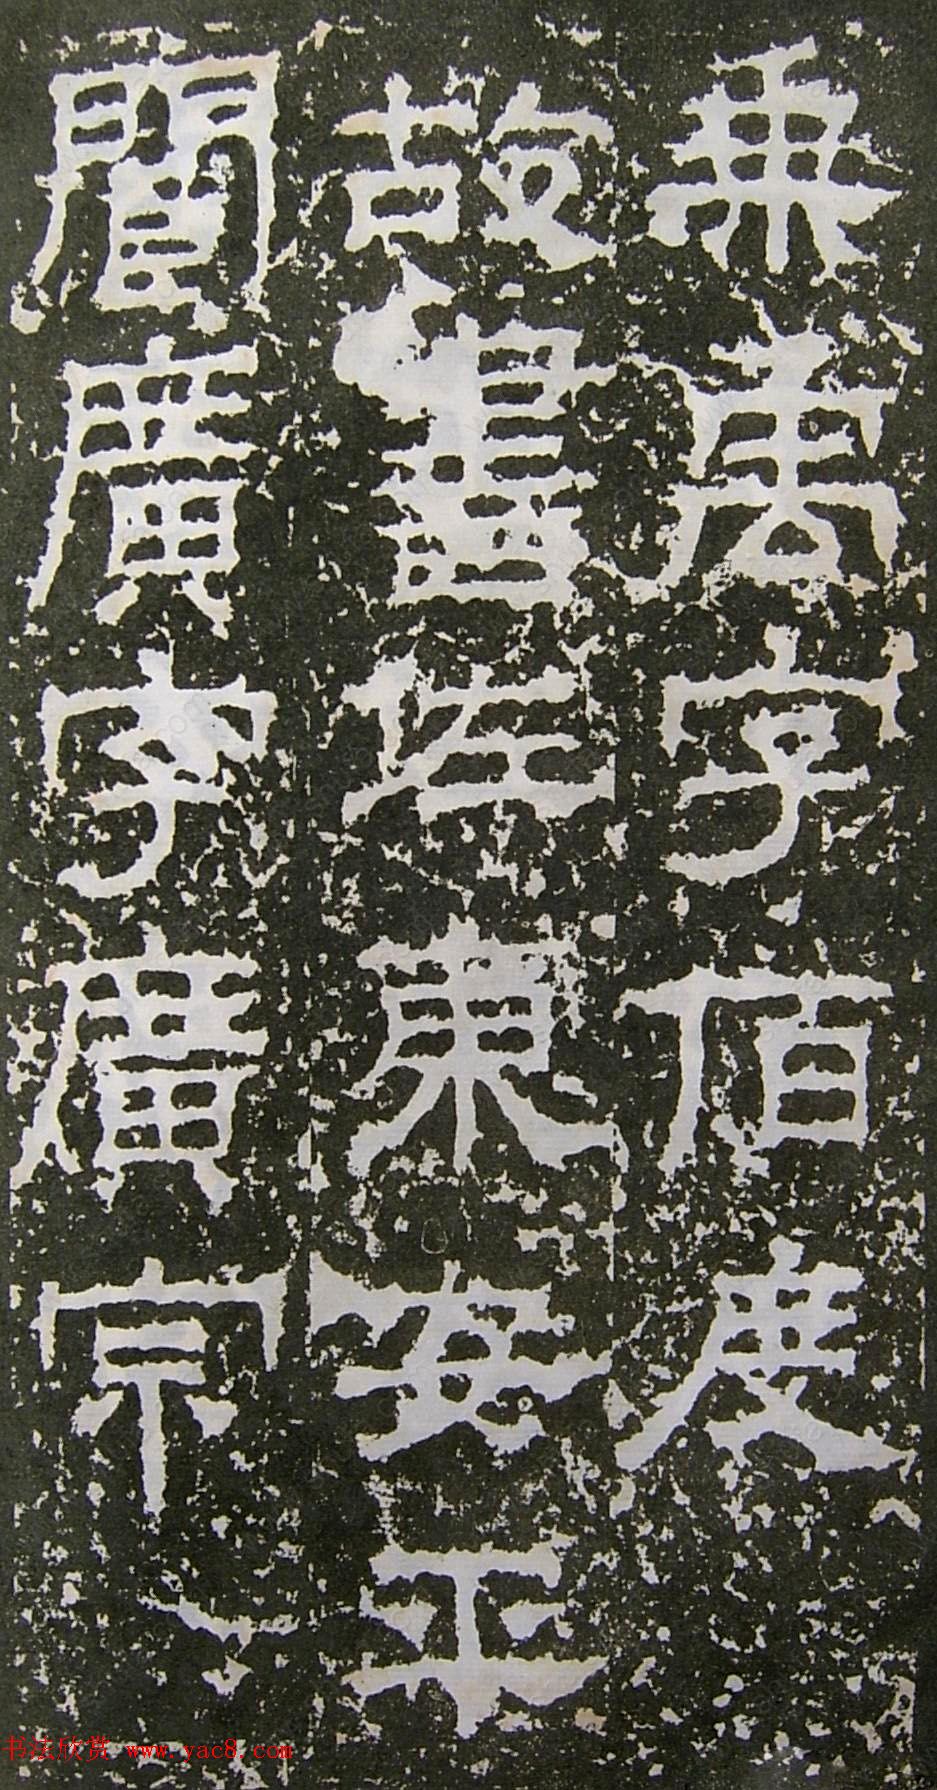 乘禹字伯度
故書佐東安平
閻廣字廣宗
书法欣赏 www.yac8.com